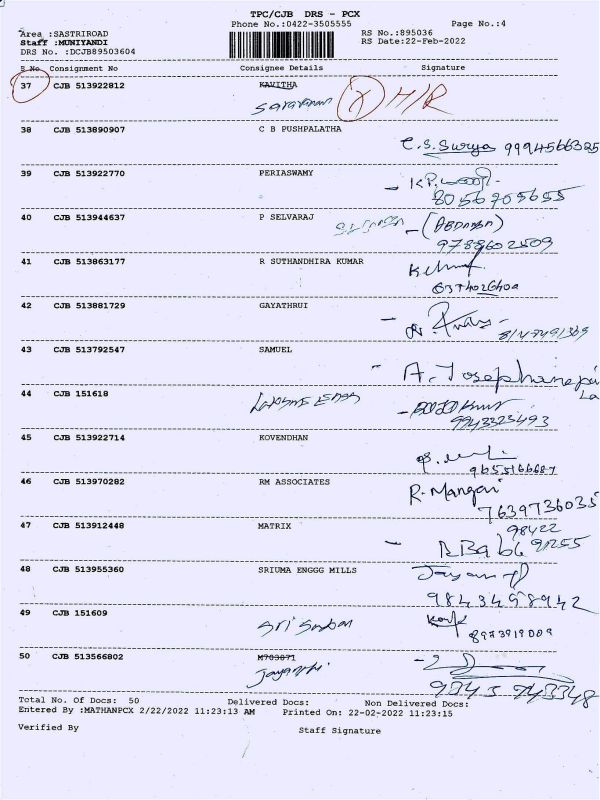 TPC/CJB DRS - PCX
Phone No.:0422-3505555 Page No.:4
Area :SASTRIROAD RS No.:895036
Staff :MUNIYANDI RS Date:22-Feb-2022
DRS No. :DCJB89503604
S No Consignment No Consignee Details Signature
37 CJB 513922812 KAVITHA
Saravanan X H/R
38 CJB 513890907 C B PUSHPALATHA
C.S. Surya 9994566325
39 CJB 513922770 PERIASWAMY
8056705655
40 CJB 513944637 P SELVARAJ
9788602509
41 CJB 513863177 R SUTHANDHIRA KUMAR
6374026400
42 CJB 513881729 GAYATHRUI
8147491369
43 CJB 513792547 SAMUEL
44 CJB 151618
9943323493
45 CJB 513922714 KOVENDHAN
9655166687
46 CJB 513970282 RM ASSOCIATES
R. Mangai
7639736035
47 CJB 513912448 MATRIX
98422
90255
48 CJB 513955360 SRIUMA ENGGG MILLS
9843498942
49 CJB 151609
8973919009
50 CJB 513566802 M703871
Total No. Of Docs: 50 Delivered Docs: Non Delivered Docs:
Entered By :MATHANPCX 2/22/2022 11:23:13 AM Printed On: 22-02-2022 11:23:15
Verified By Staff Signature